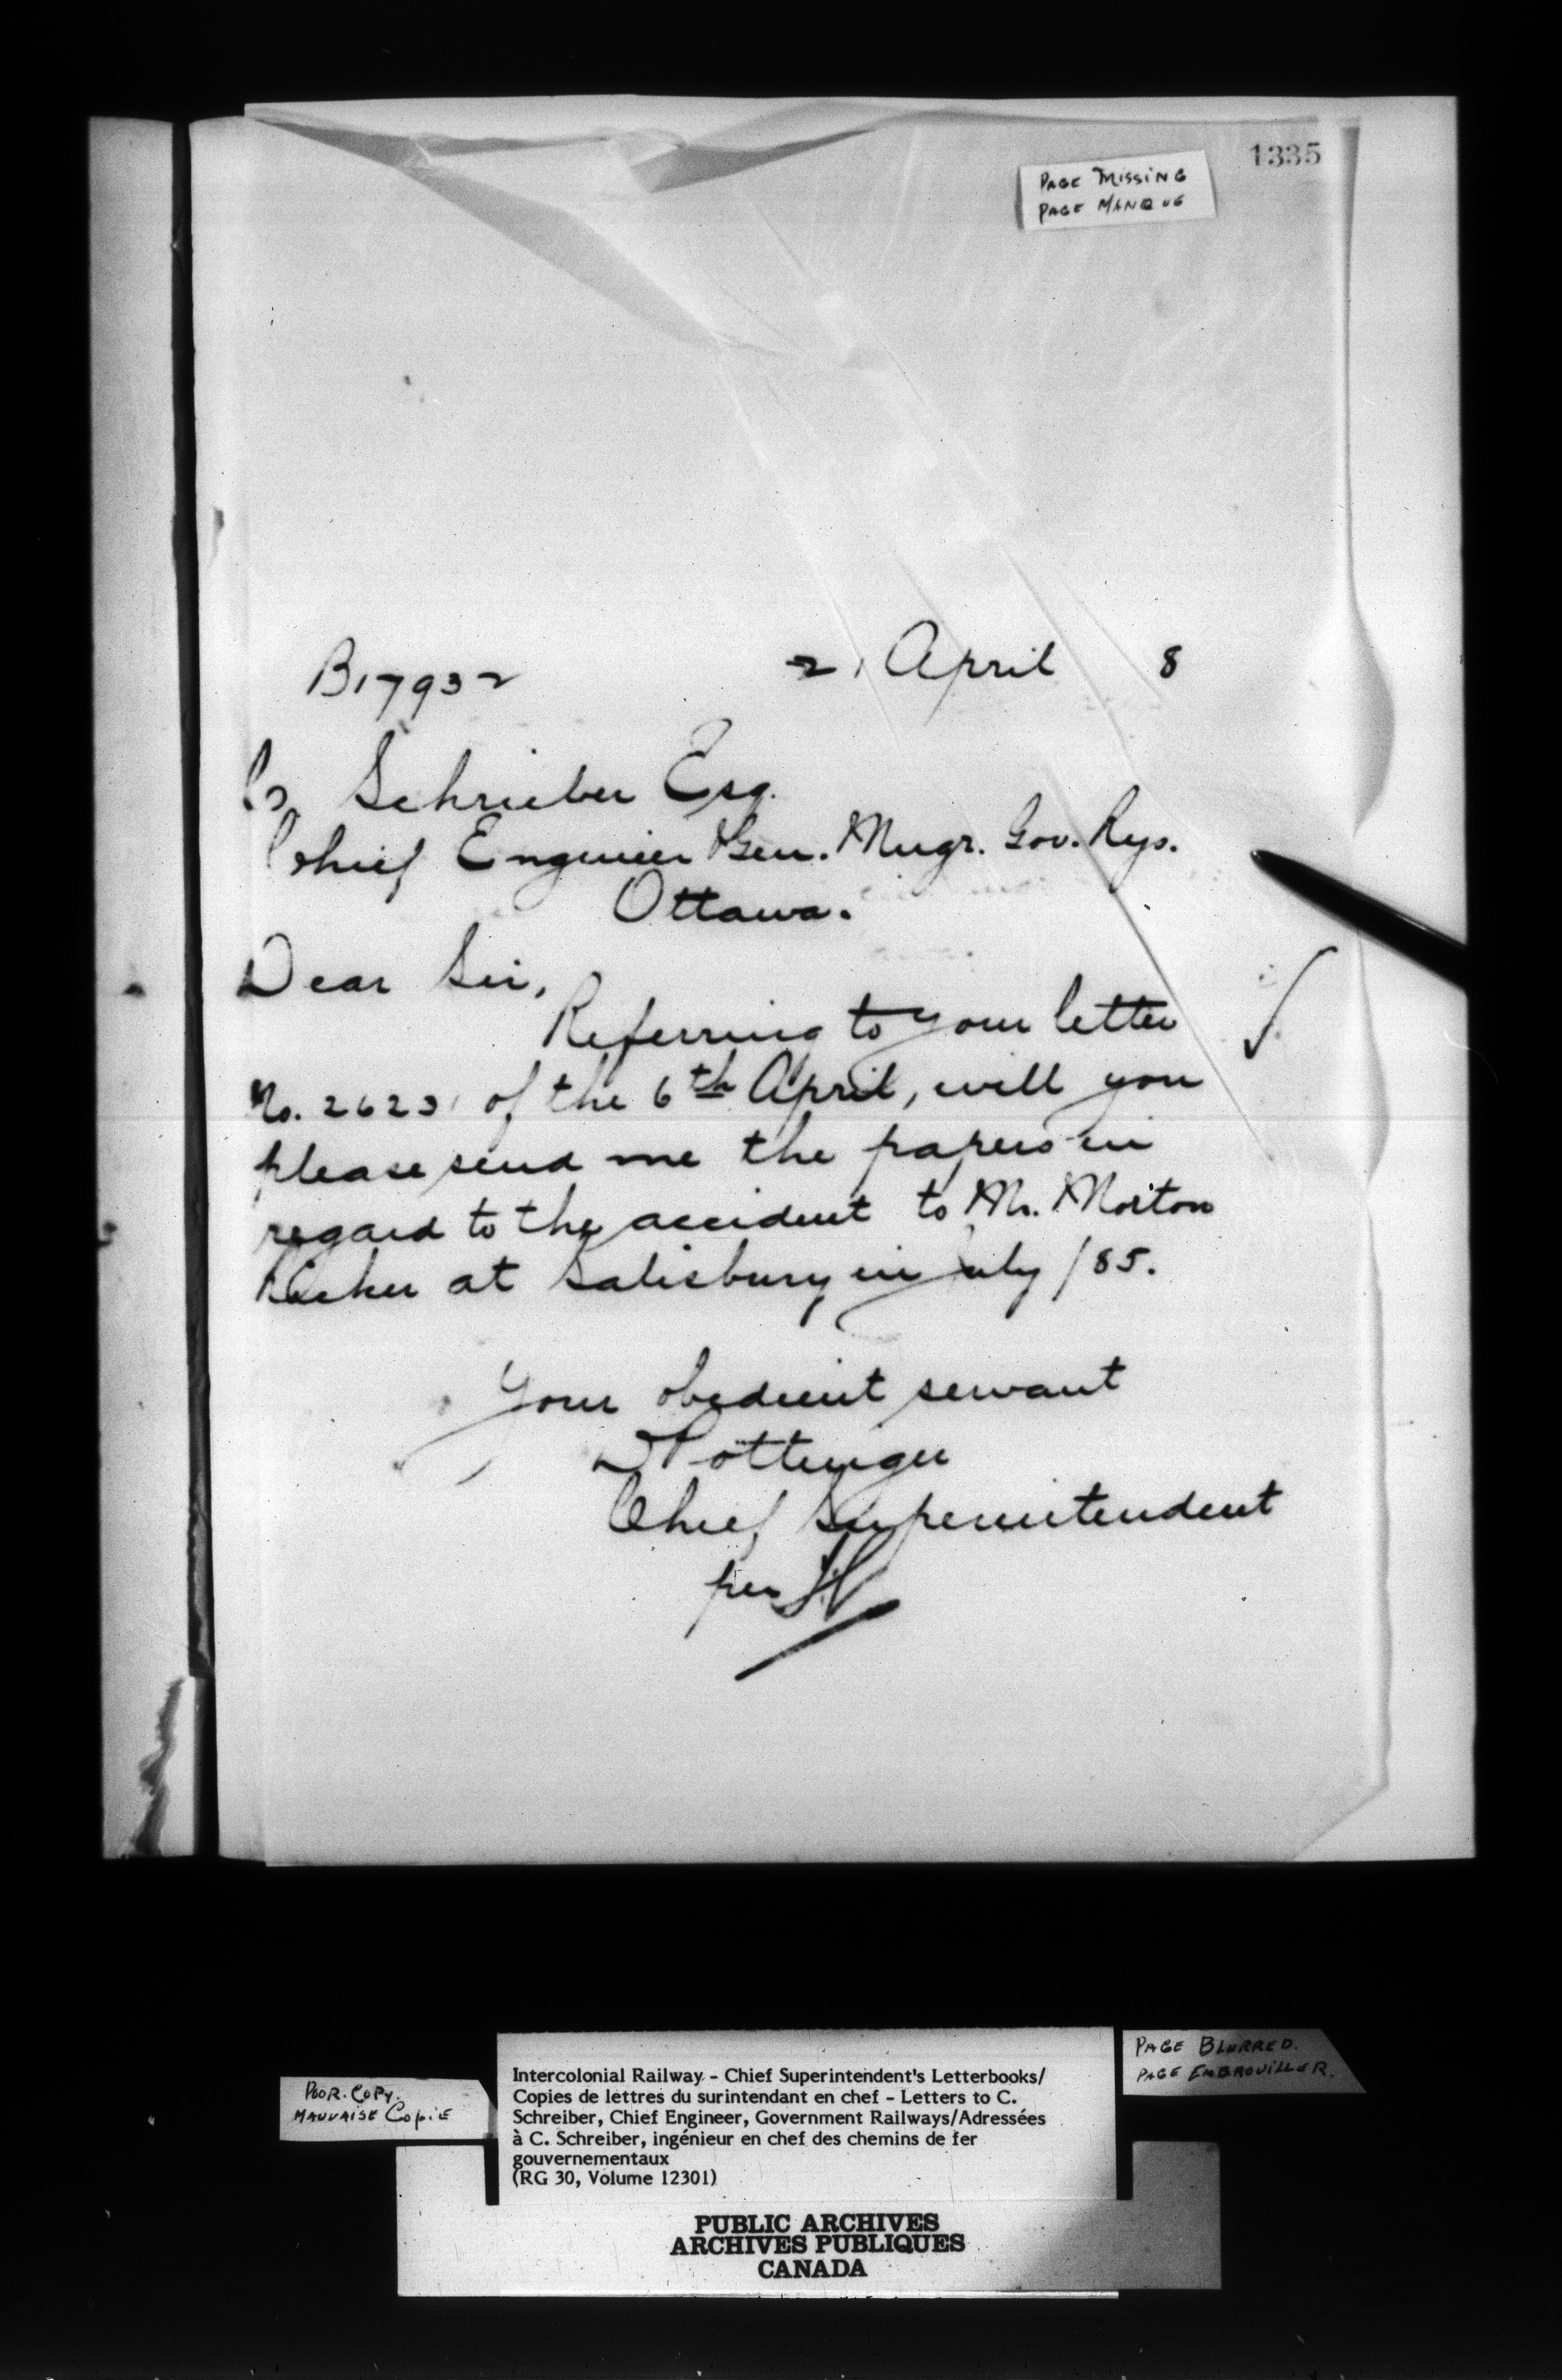 1335
PAGE MISSING
PAGE MANQUE
B17932 21 April 8
Schrieber Esq.
Chief Engineer & Gen. Mngr. Gov. Rys.
Ottawa.
Dear Sir,
Referring to your letter
No. 26231 of the 6th April, will you
please send me the papers in
regard to the accident to Mr. Morton
at Salisbury in July /85.
Your obedient servant
D Pottinger
Chief Superintendent
per
POOR. COPY.
MAUVAISE COPIE
Intercolonial Railway - Chief Superintendent's Letterbooks/
Copies de lettres du surintendant en chef - Letters to C.
Schreiber, Chief Engineer, Government Railways/Adressées
à C. Schreiber, ingénieur en chef des chemins de fer
gouvernementaux
(RG 30, Volume 12301)
PAGE BLURRED.
PAGE EMBROUILLER.
PUBLIC ARCHIVES
ARCHIVES PUBLIQUES
CANADA